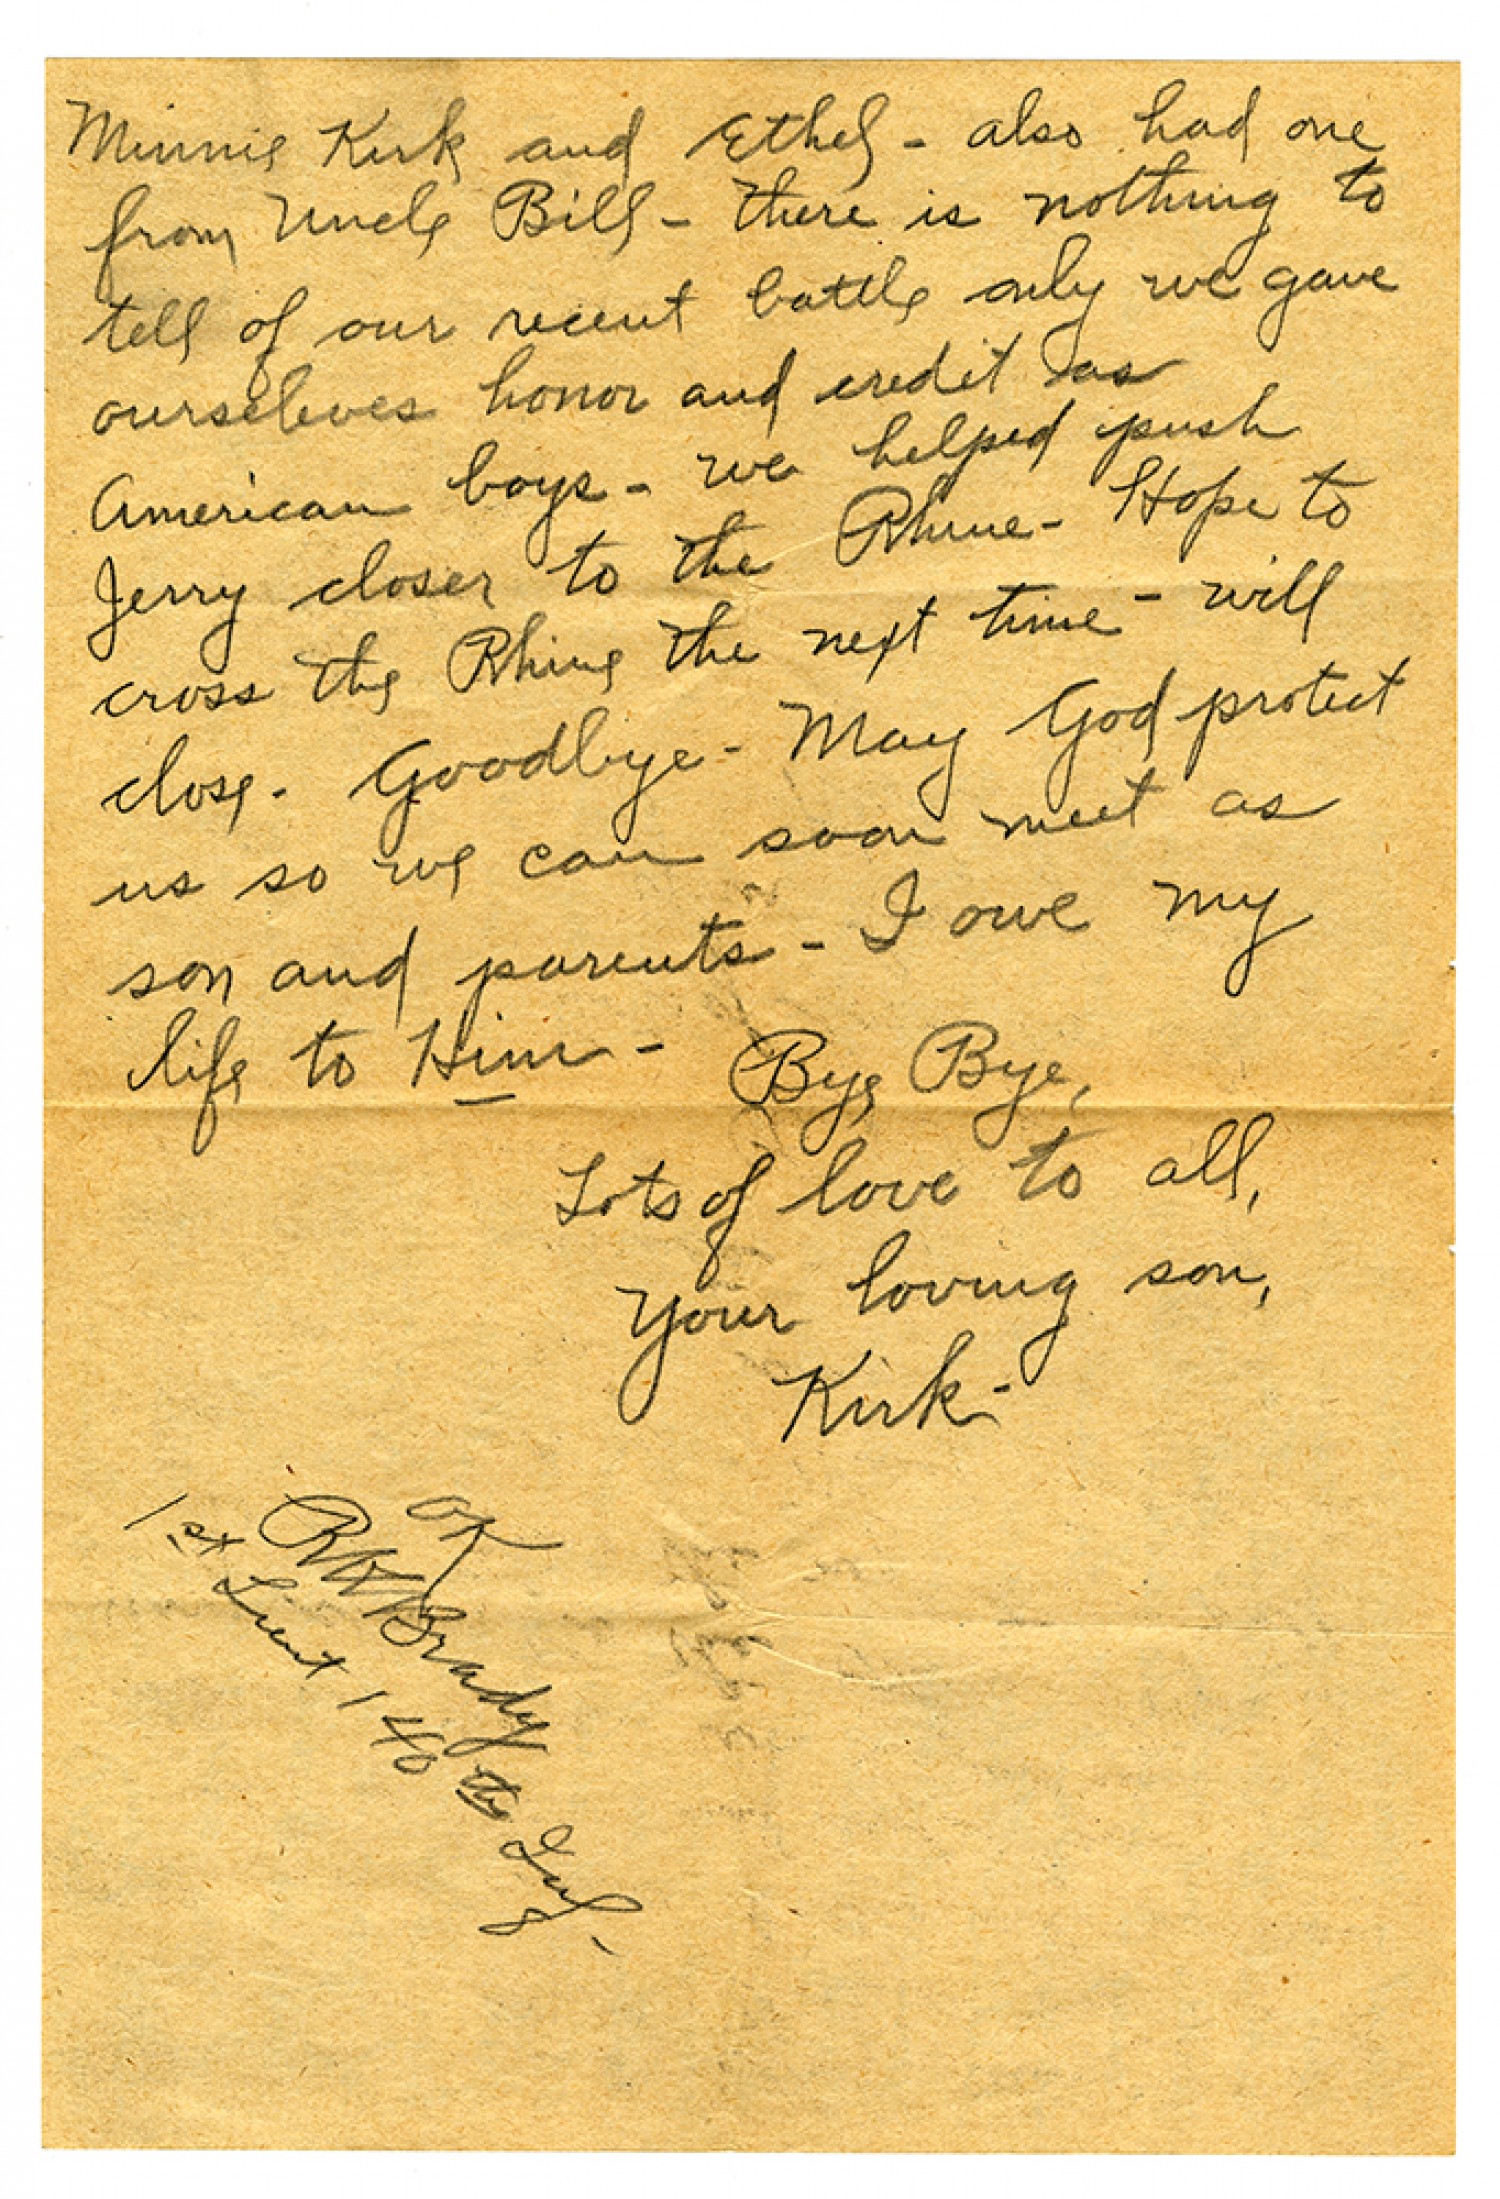 Minnie Kirk and Ethel - also had one
from Uncle Bill - there is nothing to
tell of our recent battle only we gave
ourselves honor and credit as
American boys - we helped push
Jerry closer to the Rhine - Hope to
cross the Rhine the next time - will
close. Goodbye - May God protect
us so we can soon meet as
son and parents - I owe my
life to Him - Bye Bye,
Lots of love to all,
Your loving son,
Kirk -
OK
Brady
1st Lieut 140th Inf.